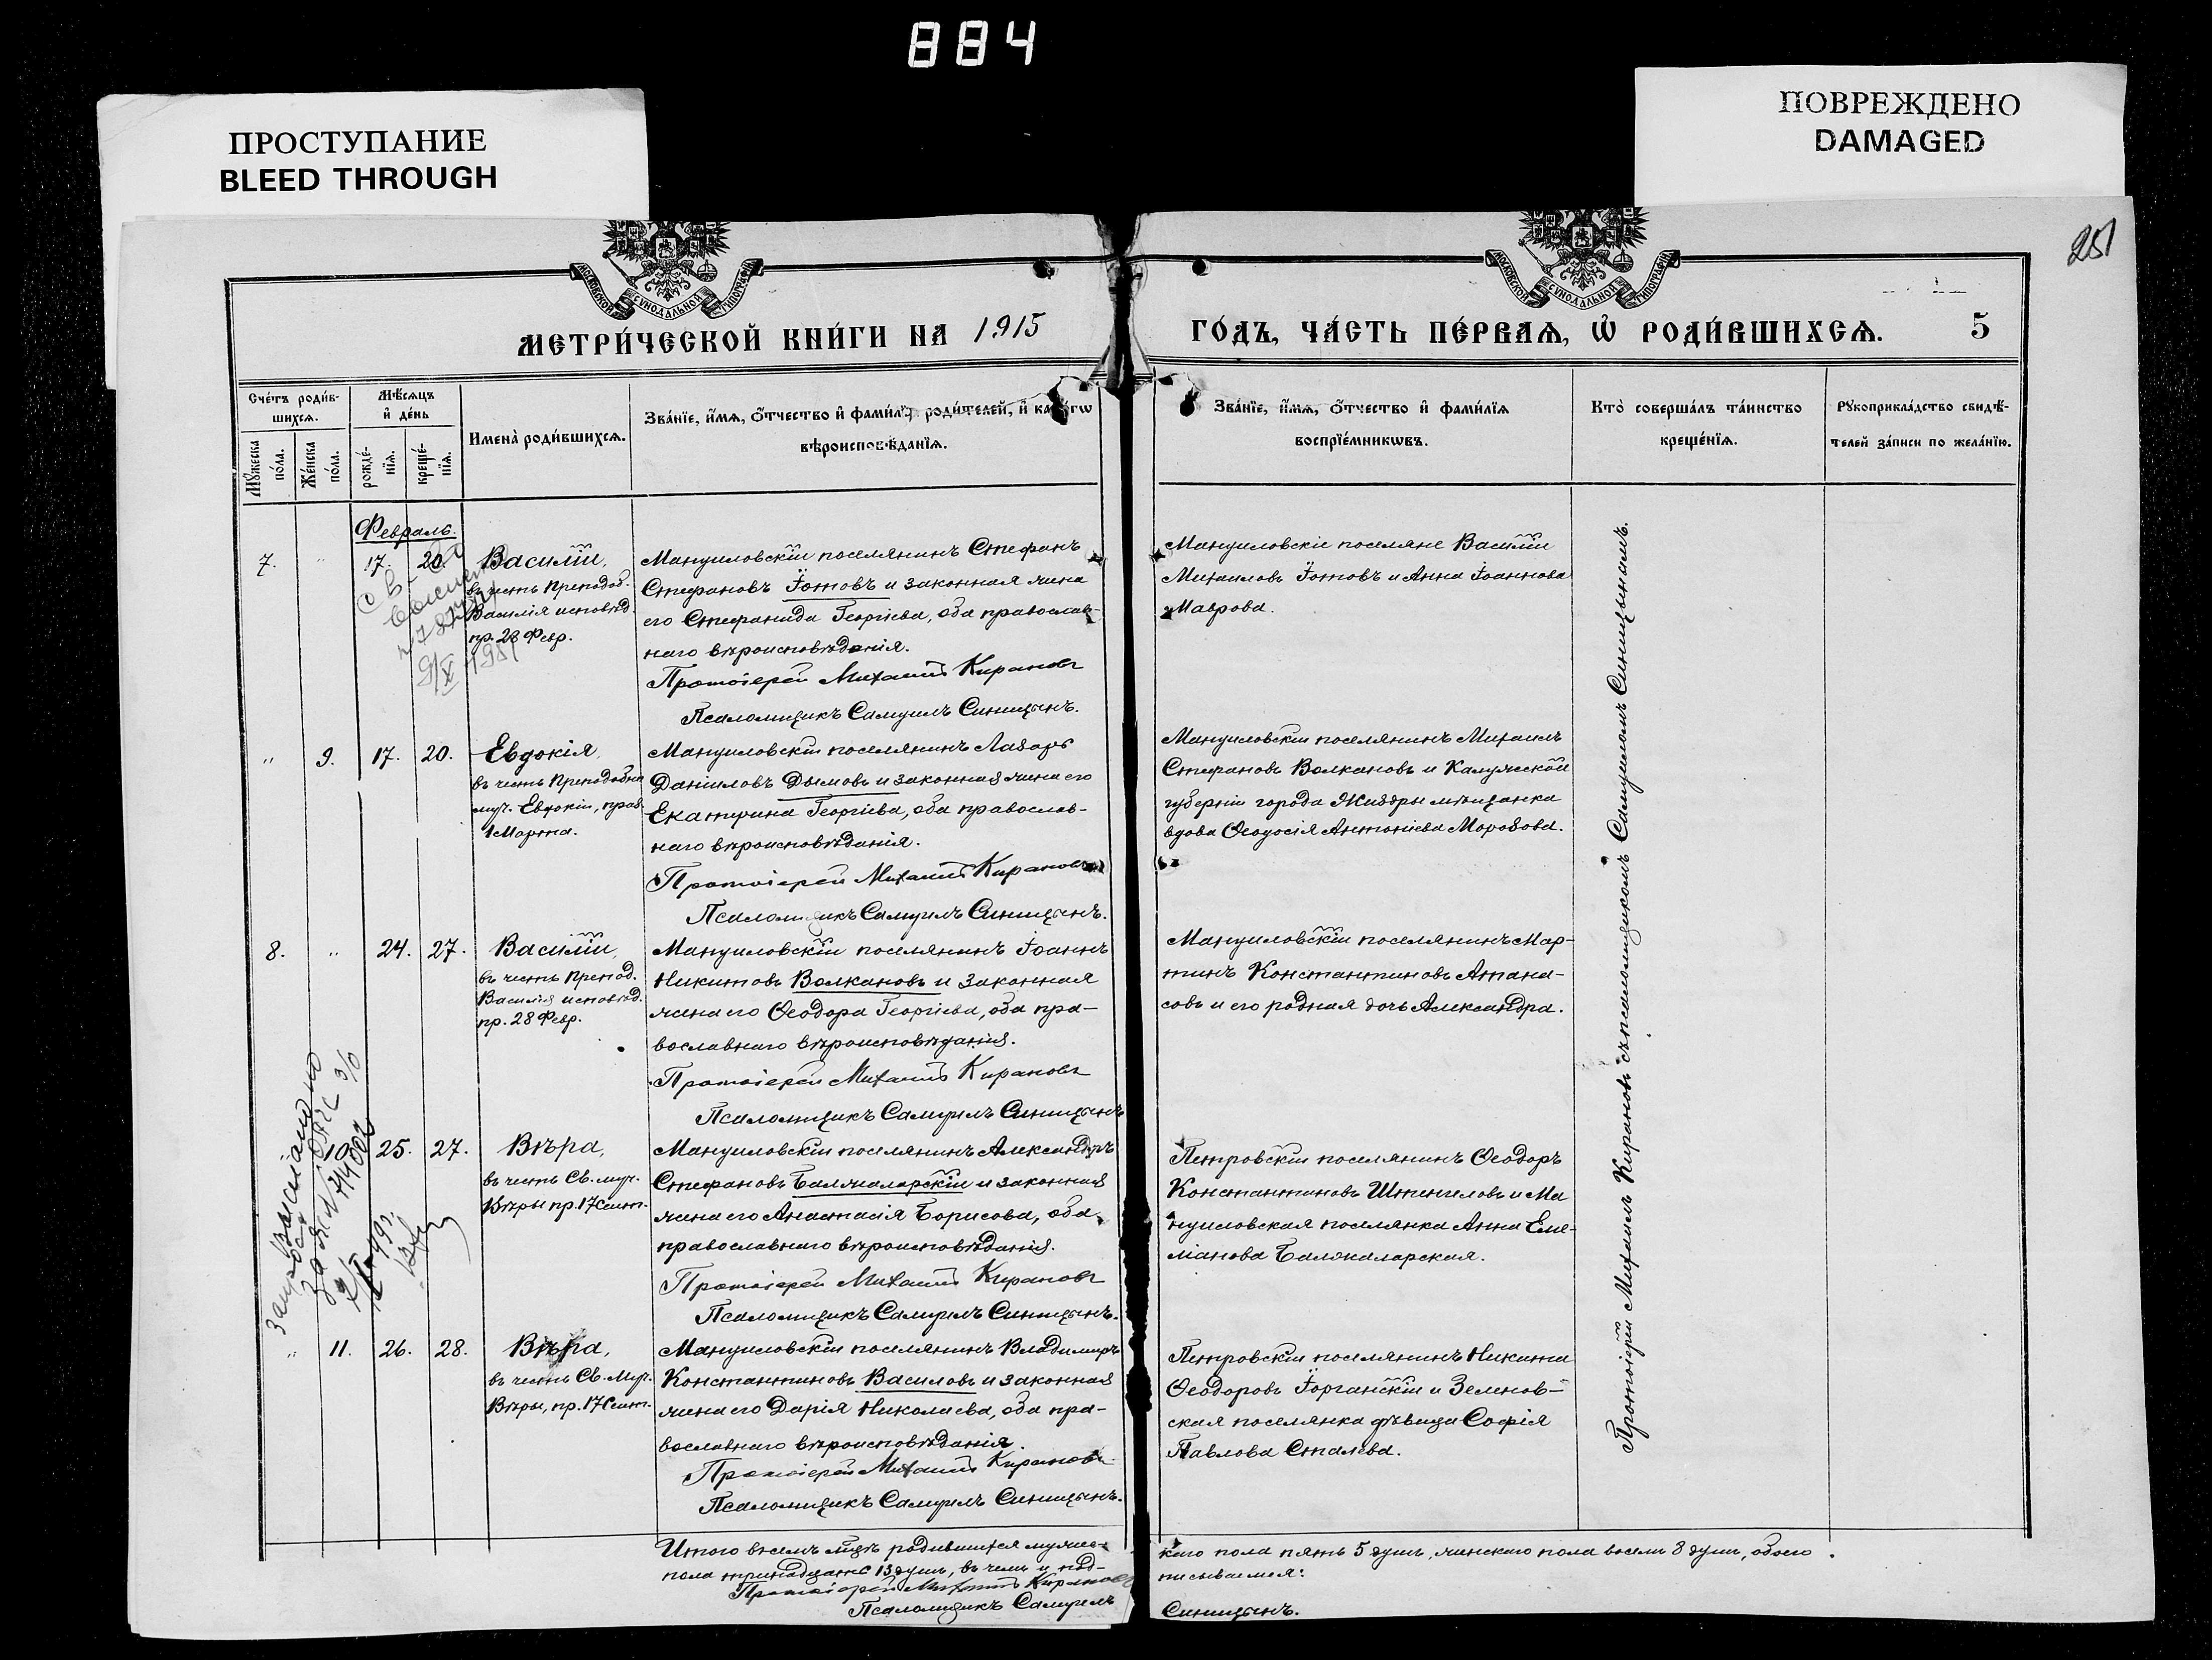 884
ПРОСТУПАНИЕ
BLEED THROUGH
ПОВРЕЖДЕНО
DAMAGED
251
МОСКОВСКОЙ СѴНОДАЛЬНОЙ ТИПОГРАФІИ
МОСКОВСКОЙ СѴНОДАЛЬНОЙ ТИПОГРАФІИ
МЕТРИ́ЧЕСКОЙ КНИ́ГИ НА 1915
ГО́ДЪ, ЧА́СТЬ ПЕ́РВАѦ, Ѡ҆ РОДИ́ВШИХСѦ. 5
Сче́тъ роди́в-
шихсѧ.
Мѣ́сѧцъ
и҆ де́нь
Мꙋ́жеска
по́ла.
Же́нска
по́ла.
рожде́-
нїѧ.
креще́-
нїѧ.
Имена̀ роди́вшихсѧ.
Зва́нїе, и҆́мѧ, ѻ҆́тчество и҆ фами́лїѧ роди́телей, и҆ како́гѡ
вѣроисповѣ́данїѧ.
Зва́нїе, и҆́мѧ, ѻ҆́тчество и҆ фами́лїѧ
воспрїе́мникѡвъ.
Кто̀ соверша́лъ та́инство
креще́нїѧ.
Рꙋкоприкла́дство свидѣ́-
телей за́писи по жела́нїю.
Февраль.
7. " 17. 20. Василій,
въ честь Преподоб.
Василія исповѣд.
пр. 28 Февр.
Мануиловскій поселянинъ Стефанъ
Стефановъ Іотовъ и законная жена
его Стефанида Георгіева, оба православ-
наго вѣроисповѣданія.
Протоіерей Михаилъ Кирановъ
Псаломщикъ Самуилъ Синицынъ.
Мануиловскіе поселяне Василій
Михаиловъ Іотовъ и Анна Іоаннова
Маврова.
9/V 1951
" 9. 17. 20. Евдокія,
въ честь Преподобно
муч. Евдокіи, праз.
1 Марта.
Мануиловскій поселянинъ Лазарь
Даніиловъ Дымовъ и законная жена его
Екатерина Георгіева, оба православ-
наго вѣроисповѣданія.
Протоіерей Михаилъ Кирановъ
Псаломщикъ Самуилъ Синицынъ.
Мануиловскій поселянинъ Михаилъ
Стефановъ Волкановъ и Калужской
губерніи города Жиздры мѣщанка
вдова Ѳеодосія Антоніева Морозова.
8. " 24. 27. Василій,
въ честь Препод.
Василія исповѣд.
пр. 28 Февр.
Мануиловскій поселянинъ Іоаннъ
Никитовъ Волкановъ и законная
жена его Ѳеодора Георгіева, оба пра-
вославнаго вѣроисповѣданія.
Протоіерей Михаилъ Кирановъ
Псаломщикъ Самуилъ Синицынъ
Мануиловскій поселянинъ Мар-
тинъ Константиновъ Атана-
совъ и его родная дочь Александра.
" 10. 25. 27. Вѣра,
въ честь Св. муч.
Вѣры пр. 17 Сент.
Мануиловскій поселянинъ Александръ
Стефановъ Балжаларскій и законная
жена его Анастасія Борисова, оба
православнаго вѣроисповѣданія.
Протоіерей Михаилъ Кирановъ
Псаломщикъ Самуилъ Синицынъ.
Петровскій поселянинъ Ѳеодоръ
Константиновъ Штенгиловъ и Ма
нуиловская поселянка Анна Еме-
ліанова Балжаларская.
" 11. 26. 28. Вѣра,
въ честь Св. Муч.
Вѣры, пр. 17 Сент.
Мануиловскій поселянинъ Владимиръ
Константиновъ Василовъ и законная
жена его Дарія Николаева, оба пра-
вославнаго вѣроисповѣданія.
Протоіерей Михаилъ Кирановъ
Псаломщикъ Самуилъ Синицынъ.
Петровскій поселянинъ Никита
Ѳеодоровъ Іорганскій и Зеленов-
ская поселянка дѣвица Софія
Павлова Сталева.
Протоіерей Михаилъ Кирановъ съ псаломщикомъ Самуиломъ Синицынымъ.
пола тринадцать 13 душъ, въ чемъ и под-
Протоіерей Михаилъ Кирановъ
Псаломщикъ Самуилъ
каго пола пять 5 душъ, женскаго пола восемь 8 душъ, обоего
писываемся:
Синицынъ.